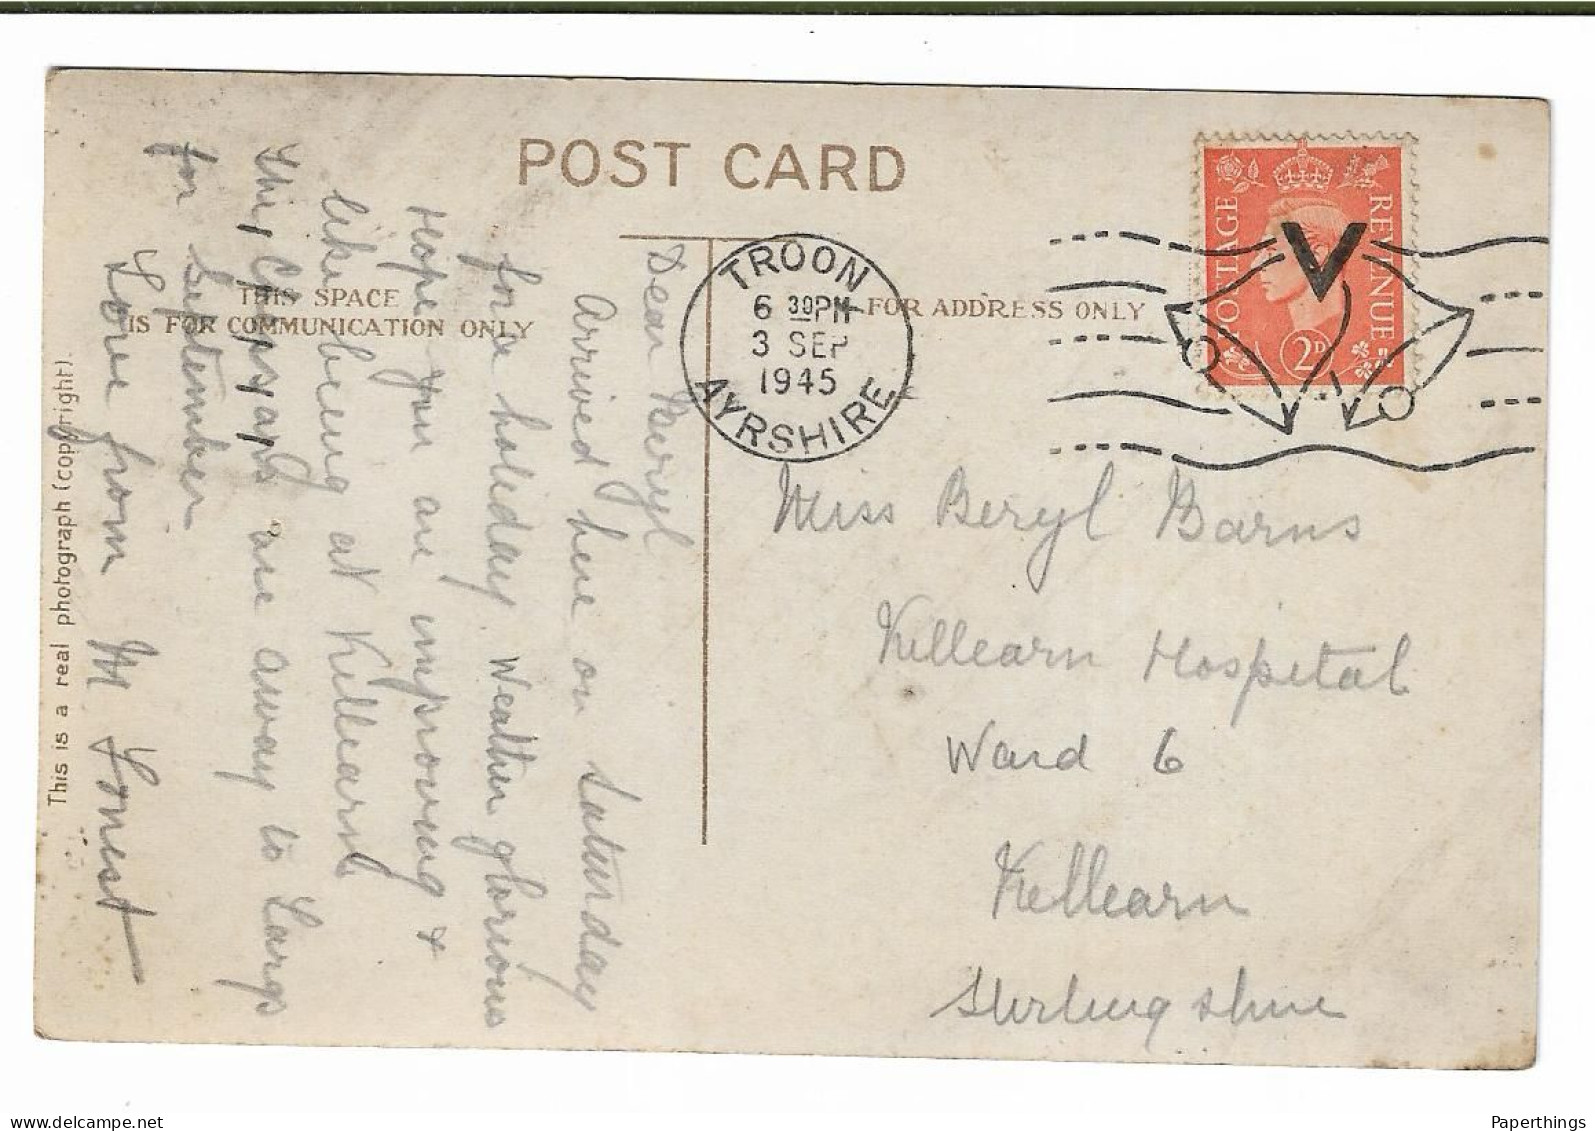 POST CARD
THIS SPACE
IS FOR COMMUNICATION ONLY
FOR ADDRESS ONLY
This is a real photograph (copyright).
POSTAGE
REVENUE
2D
TROON
6 30PM
3 SEP
1945
AYRSHIRE
V
Dear Beryl
Arrived here on Saturday
for holiday Weather glorious
Hope you are improving &
like being at Killearn
The are away to Largs
for September
Love from M
Miss Beryl Barns
Killearn Hospital
Ward 6
Killearn
Stirlingshire
delcampe.net
Paperthings